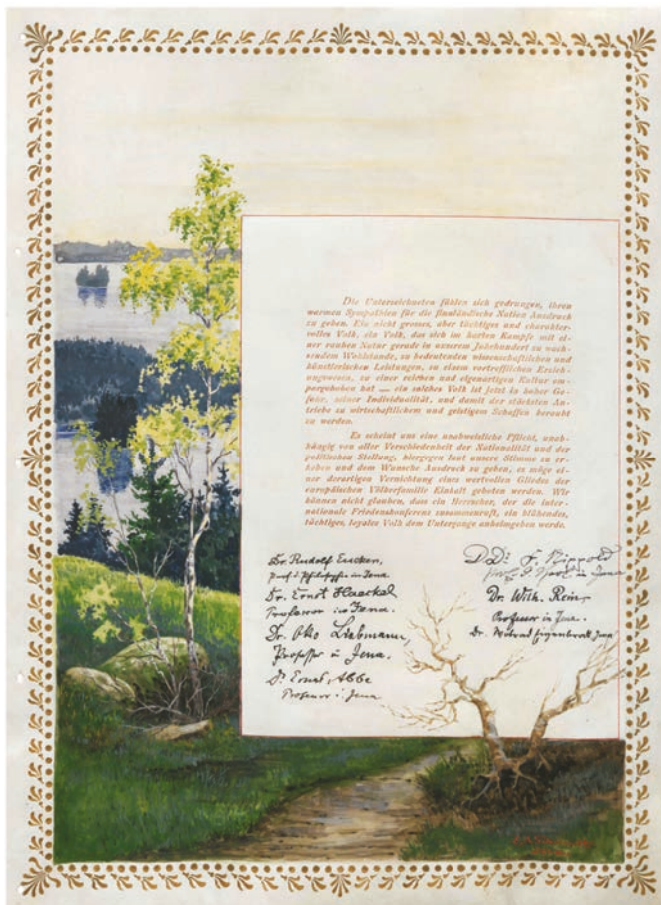 Die Unterzeichneten fühlen sich gedrungen, ihren
warmen Sympathien für die finnländische Nation Ausdruck
zu geben. Ein nicht grosses, aber tüchtiges und charakter-
volles Volk, ein Volk, das sich im harten Kampfe mit ei-
ner rauhen Natur gerade in unserem Jahrhundert zu wach-
sendem Wohlstande, zu bedeutenden wissenschaftlichen und
künstlerischen Leistungen, zu einem vortrefflichen Erzieh-
ungswesen, zu einer reichen und eigenartigen Kultur em-
porgehoben hat — ein solches Volk ist jetzt in hoher Ge-
fahr, seiner Individualität, und damit der stärksten An-
triebe zu wirtschaftlichem und geistigem Schaffen beraubt
zu werden.
Es scheint uns eine unabweisliche Pflicht, unab-
hängig von aller Verschiedenheit der Nationalität und der
politischen Stellung, hiergegen laut unsere Stimme zu er-
heben und dem Wunsche Ausdruck zu geben, es möge ei-
ner derartigen Vernichtung eines wertvollen Gliedes der
europäischen Völkerfamilie Einhalt geboten werden. Wir
können nicht glauben, dass ein Herrscher, der die inter-
nationale Friedenskonferenz zusammenruft, ein blühendes,
tüchtiges, loyales Volk dem Untergange anheimgeben werde.
Dr. Rudolf Eucken,
Prof. d. Philosophie in Jena.
Dr. Ernst Haeckel
Professor in Jena.
Dr. Otto Liebmann,
Professor in Jena.
Dr. Ernst Abbe
Professor i. Jena
D. Dr. F. Nippold
in Jena
Dr. Wilh. Rein,
Professor in Jena.
Dr. Jena